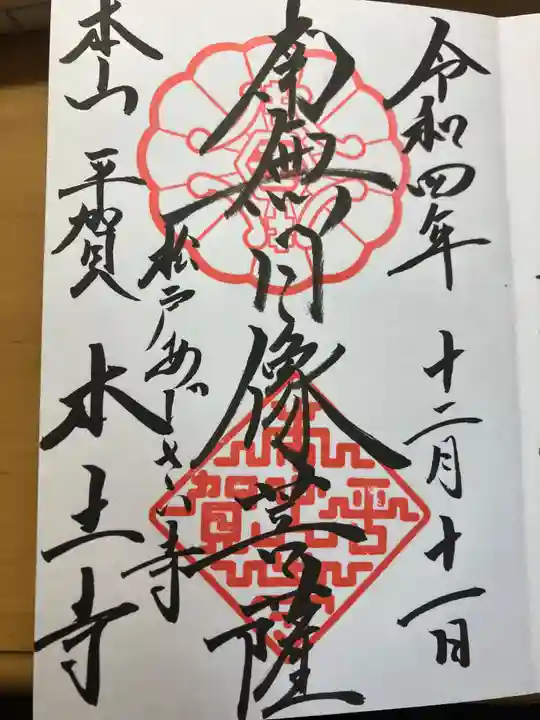 令和四年 十二月十一日
南無日像菩薩
松戸あじさい寺
本山 平賀 本土寺